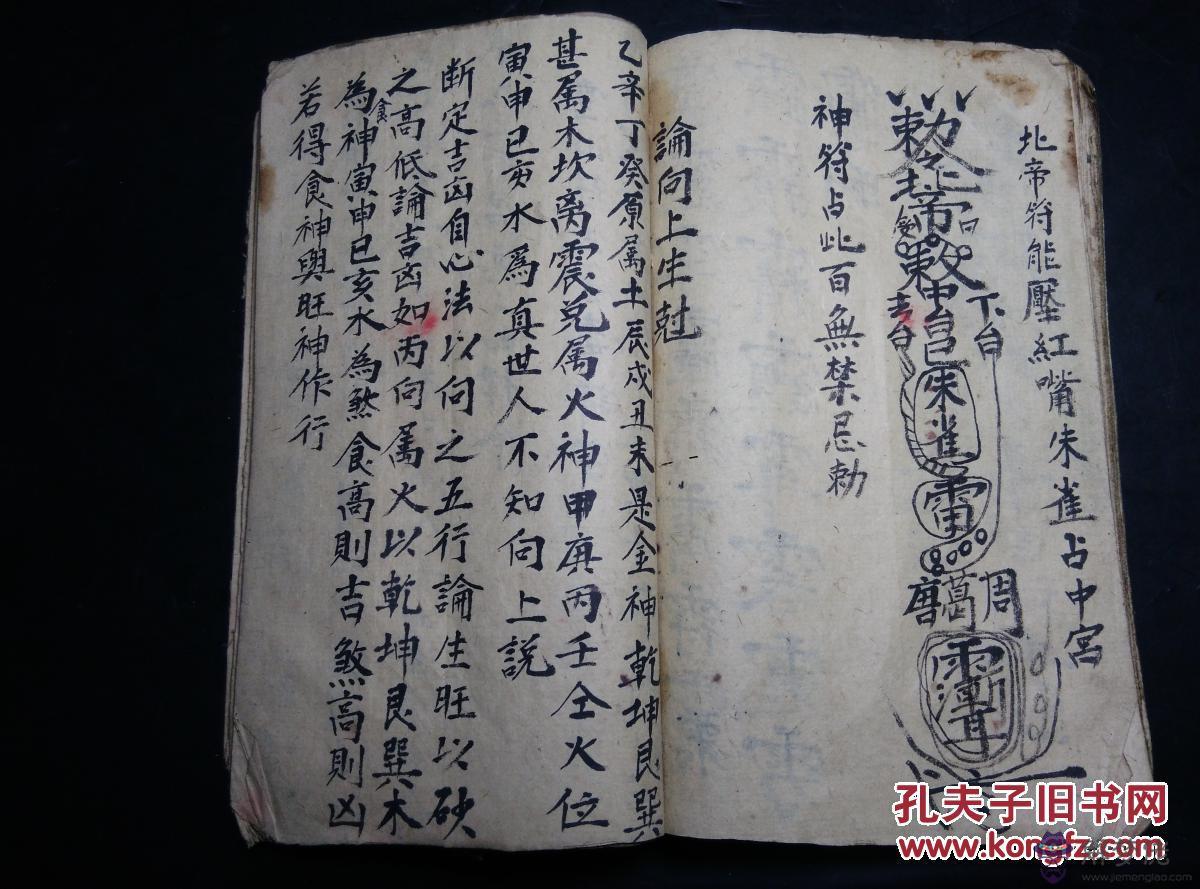 北帝符能壓紅嘴朱雀占中宮
勅
北帝
敕
上台
中台
下台
朱雀
雷
唐葛周
神符占此百無禁忌勅
論向上生尅
乙辛丁癸原属土辰戍丑未是金神乾坤艮巽
甚属木坎离震兌属火神甲庚丙壬仝火位
寅申巳亥水爲真世人不知向上説
断定吉凶自心法以向之五行論生旺以砂
之高低論吉凶如丙向属火以乾坤艮巽木
為食神寅申巳亥水為煞食高則吉煞高則凶
若得食神與旺神作行
孔夫子旧书网
www.kongfz.com
www.jiemenglao.com